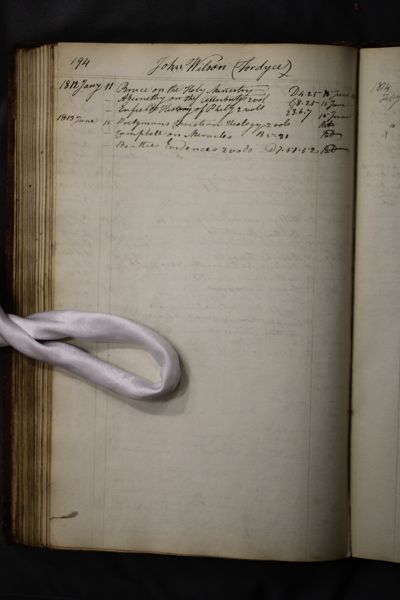 194 John Wilson (Fordyce)
1812 Jany 11 Bruce on the Holy Ministry D4.25 15 June
— Abernethy on the Attributes 2 vol G8.25 15 June
— Enfield's History of Phily 2 vols 15 June
1813 June 15 Christian Theology 2 vols Retd
Campbell on Miracles Retd
Beatties Evidences 2 vols Retd
1814